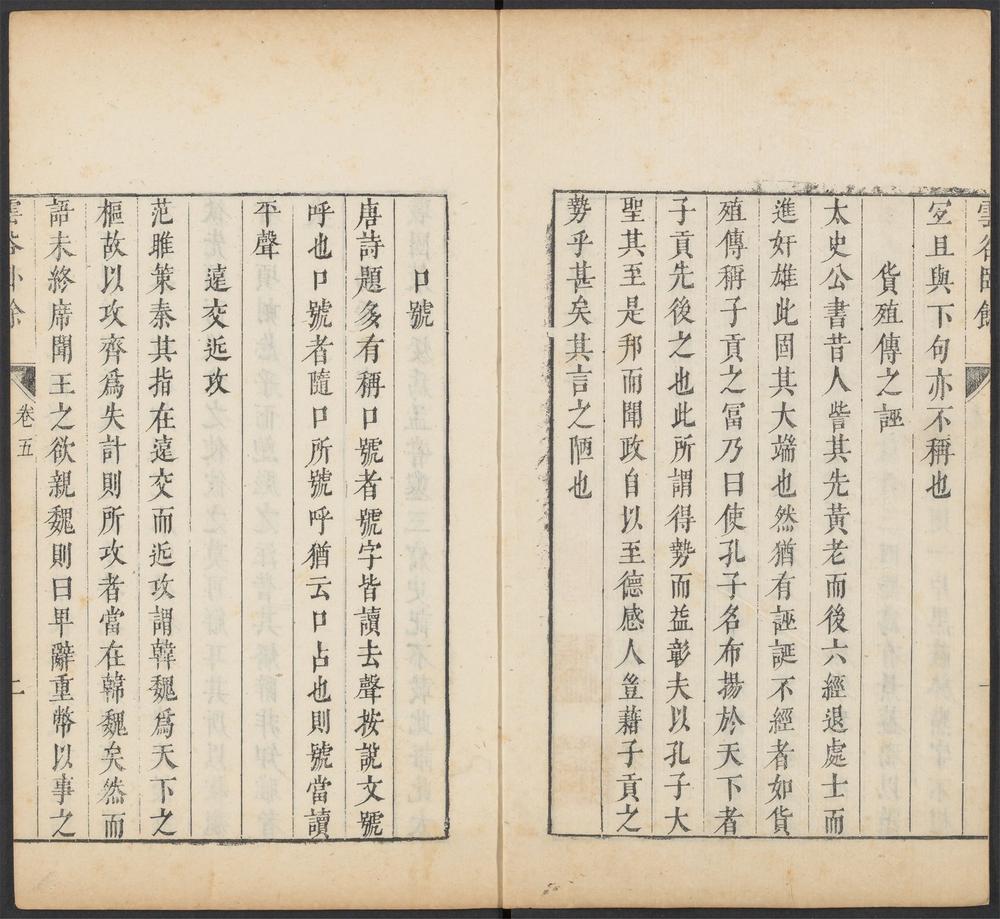 雲谷臥餘
一
㝎且與下句亦不稱也
貨殖傳之誣
太史公書昔人訾其先黃老而後六經退處士而
進奸雄此固其大端也然猶有誣誕不經者如貨
殖傳稱子貢之冨乃曰使孔子名布揚於天下者
子貢先後之也此所謂得勢而益彰夫以孔子大
聖其至是邦而聞政自以至德感人豈藉子貢之
勢乎甚矣其言之陋也
口號
唐詩題多有稱口號者號字皆讀去聲按說文號
呼也口號者隨口所號呼猶云口占也則號當讀
平聲
遠交近攻
范雎策秦其指在遠交而近攻謂韓魏爲天下之
樞故以攻齊爲失計則所攻者當在韓魏矣然而
語未終席聞王之欲親魏則曰卑辭重幣以事之
雲谷臥餘
卷五
二